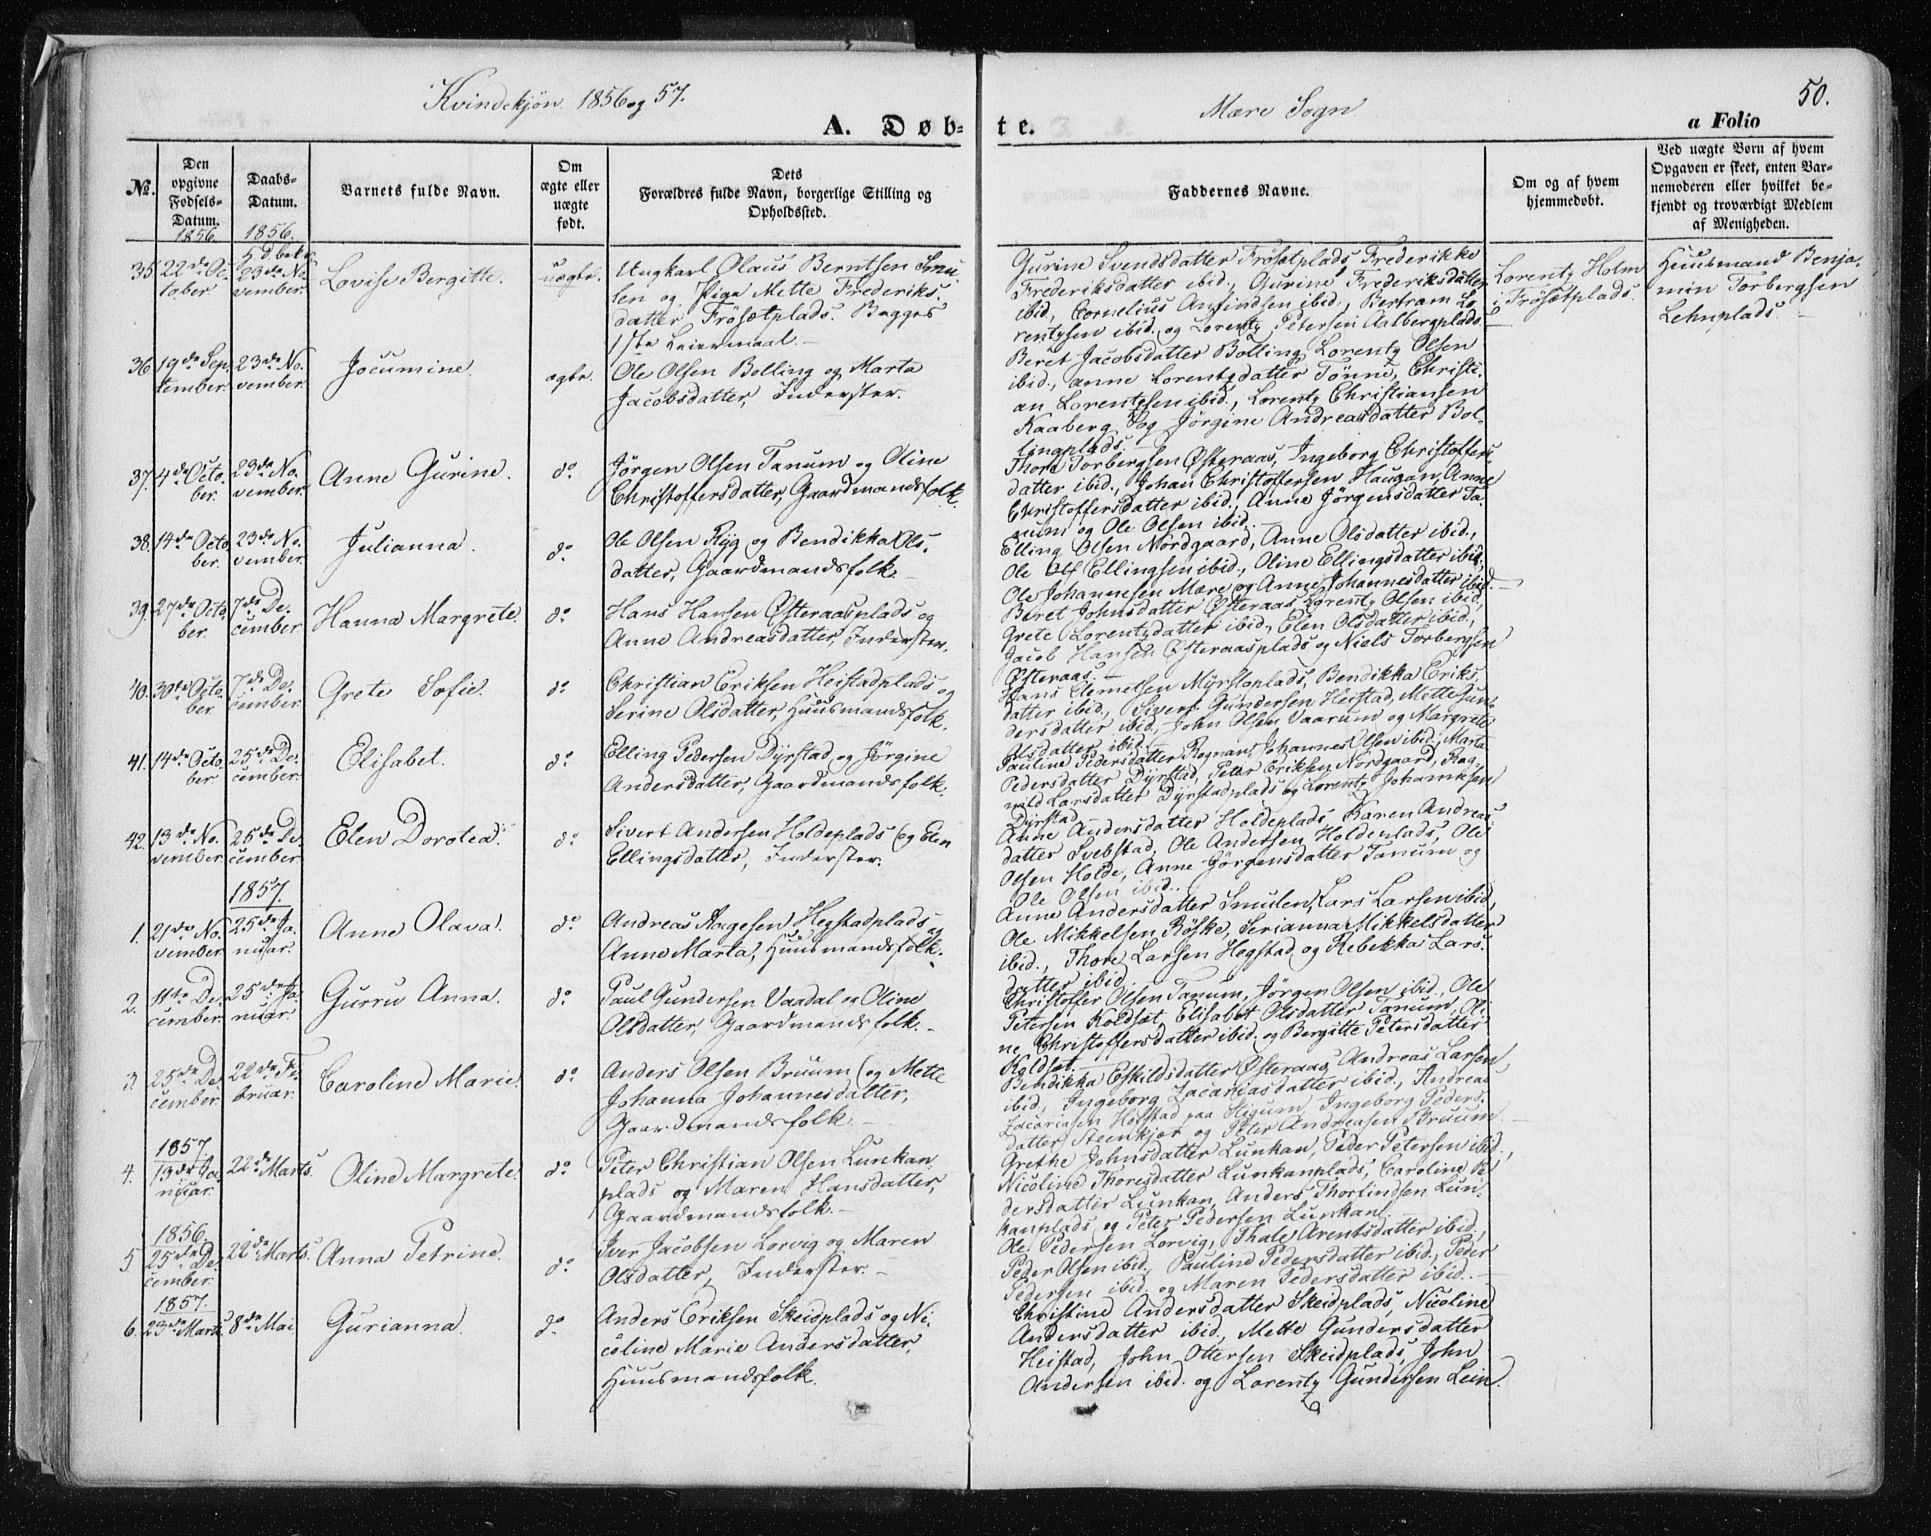 Kvindekjøn 1856 og 57.
Mære Sogn
50.
A. Døb-
te.
a Folio
No.
Den opgivne Fødsels-Datum.
Daabs-Datum.
Barnets fulde Navn.
Om ægte eller uægte født.
Dets Forældres fulde Navn, borgerlige Stilling og Opholdssted.
Faddernes Navne.
Om og af hvem hjemmedøbt.
Ved uægte Børn af hvem Opgaven er skeet, enten Barnemoderen eller hvilket bekjendt og troværdigt Medlem af Menigheden.
1856.
1856.
35.
22de Oc-
tober
23de No-
vember
Lovise Bergitte.
uægte.
Ungkarl Olaus Berntsen Smu-
len og Pige Mette Frederiks-
datter Frösetplads. Begges
1ste Leiermaal.
Gurine Svendsdatter Frösetplads, Frederikke
Frederiksdatter ibid., Gurine Frederiksdatter
ibid., Cornelius Anfindsen ibid., Bertram Lo-
rentzsen ibid. og Lorentz Petersen Aalbergplads.
Lorentz Holm
i Frösetplads.
Huusmand Benja-
min Torbergsen
Lehnplads.
36.
19de Sep-
tember.
23de No-
vember.
Jocumine.
ægte.
Ole Olsen Bolling og Marta
Jacobsdatter, Inderster.
Beret Jacobsdatter Bolling, Lorentz Olsen
ibid., Anne Lorentzdatter Tönne, Christi-
an Lorentzsen ibid., Lorentz Christiansen
Kaaberg og Jörgine Andreasdatter Bol-
lingplads.
37.
4de Octo-
ber.
23de No-
vember.
Anne Gurine.
do.
Jörgen Olsen Tanum og Oline
Christoffersdatter, Gaardmandsfolk.
Thore Torbergsen Østeraas, Ingeborg Christoffers-
datter ibid., Johan Christoffersen Haugan, Anne
Christoffersdatter ibid., Anne Jörgensdatter Ta-
num og Ole Olsen ibid.
38.
14de Octo-
ber.
23de No-
vember.
Julianna.
do.
Ole Olsen Ryg og Bendikka Ols-
datter, Gaardmandsfolk.
Elling Olsen Nordgaard, Anne Olsdatter ibid.,
Ole Ellingsen ibid., Oline Ellingsdatter ibid.,
Ole Johannesen Mære og Anne Johannesdatter ibid.
39.
27de Octo-
ber.
7de De-
cember
Hanna Margrete.
do.
Hans Hansen Østeraasplads og
Anne Andreasdatter, Inderster.
Beret Johnsdatter Østeraas, Lorentz Olsen ibid.,
Grete Lorentzdatter ibid., Elen Olsdatter ibid.,
Jacob Hansen Østeraasplads og Niels Torbergsen
Østeraas.
40.
30te Octo-
ber.
7de De-
cember.
Grete Sofie.
do.
Christian Eriksen Heistadplads og
Serine Olsdatter, Huusmandsfolk.
Hans Clemetsen Myrstoplads, Bendikka Eriks-
datter ibid., Sivert Gundersen Heistad, Mette Gun-
dersdatter ibid., John Olsen Vaarum og Margrete
Olsdatter ibid.
41.
14de Octo-
ber
25de De-
cember.
Elisabet.
do.
Elling Pedersen Dyrstad og Jörgine
Andersdatter, Gaardmandsfolk.
Pauline Pedersdatter Rognan, Johannes Olsen ibid., Marta
Pedersdatter Dyrstad, Peter Eriksen Nordgaard, Rag-
nild Larsdatter Dyrstadplads og Lorentz Johannesen
Dyrstad.
42.
13de No-
vember.
25de De-
cember
Elen Dorotea.
do.
Sivert Andersen Holdeplads og Elen
Ellingsdatter, Inderster.
Anne Andersdatter Holdeplads, Karen Andreas-
datter Svebstad, Ole Andersen Holdenplads, Ole
Olsen Holde, Anne Jörgensdatter Tanum og
Ole Olsen ibid.
1857.
1.
21de No-
vember
25de Ja-
nuar.
Anne Olava.
do.
Andreas Aagesen Hegstadplads og
Anne Marta, Huusmandsfolk.
Anne Andersdatter Smulen, Lars Larsen ibid.,
Ole Mikkelsen Röske, Serianna Mikkelsdatter
ibid., Thore Larsen Hegstad og Rebekka Lars-
datter ibid.
2.
11te De-
cember.
25de Ja-
nuar.
Gurru Anna.
do.
Paul Gundersen Vaadal og Oline
Olsdatter, Gaardmandsfolk.
Christoffer Olsen Tanum, Jörgen Olsen ibid., Ole
Petersen Koldsæt, Elisabet Olsdatter Tanum, Oli-
ne Christoffersdatter ibid. og Bergitte Petersdatter
Koldsæt.
3.
25de De-
cember
22de Fe-
bruar.
Caroline Marie.
do.
Anders Olsen Bruum og Mette
Johanna Johannesdatter,
Gaardmandsfolk.
Bendikka Eskildsdatter Østeraas, Andreas Larsen
ibid., Ingeborg Zacariasdatter ibid., Andreas
Zacariasen Hofstad paa Stigum, Ingeborg Peders-
datter Steenkjær og Peter Andreasen Bruum.
1857.
4.
13de Ja-
nuar.
22de Marts.
Oline Margrete.
do.
Peter Christian Olsen Lunkan-
plads og Maren Hansdatter,
Gaardmandsfolk.
Grethe Johnsdatter Lunkan, Peder Petersen ibid.,
Nicoline Thoresdatter Lunkanplads, Caroline Pe-
dersdatter Lunkan, Anders Thorfindsen Lun-
kanplads og Peter Pedersen Lunkan.
1856.
5.
25de De-
cember.
22de Marts.
Anna Petrine.
do.
Iver Jacobsen Lorvig og Maren
Olsdatter, Inderster.
Ole Pedersen Lorvig, Thale Arentsdatter ibid.,
Peder Olsen ibid., Pauline Pedersdatter ibid., Peder
Pedersen ibid. og Maren Pedersdatter ibid.
1857.
6.
23de Marts.
8de Mai
Gurianna.
do.
Anders Eriksen Skeidplads og Ni-
coline Marie Andersdatter,
Huusmandsfolk.
Christine Andersdatter Skeidplads, Nicoline
Andersdatter ibid., Mette Gundersdatter
Heistad, John Ottersen Skeidplads, John
Andersen ibid. og Lorentz Gundersen Lein.